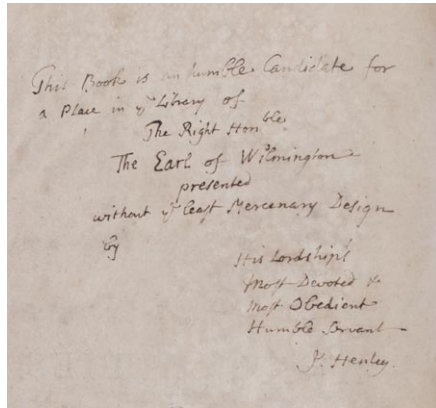 This Book is an humble Candidate for
a Place in yᵉ Library of
The Right Honᵇˡᵉ
The Earl of Wilmington
presented
without yᵉ least Mercenary Design
by
His Lordship's
Most Devoted &
Most Obedient
Humble Servant
J. Henley.